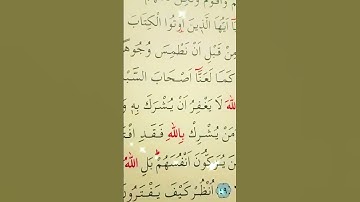 وَاَقْوَمَ وَلٰكِنْ لَعَنَهُمُ
اَيُّهَا الَّذ۪ينَ اُو۫تُوا الْكِتَابَ
مِنْ قَبْلِ اَنْ نَطْمِسَ وُجُوهًا
كَمَا لَعَنَّٓا اَصْحَابَ السَّبْ
اللّٰهَ لَا يَغْفِرُ اَنْ يُشْرَكَ بِه۪ وَ
مَنْ يُشْرِكْ بِاللّٰهِ فَقَدِ افْتَ
نَ يُزَكُّونَ اَنْفُسَهُمْۜ بَلِ اللّٰهُ
٤٩ اُنْظُرْ كَيْفَ يَفْتَرُونَ